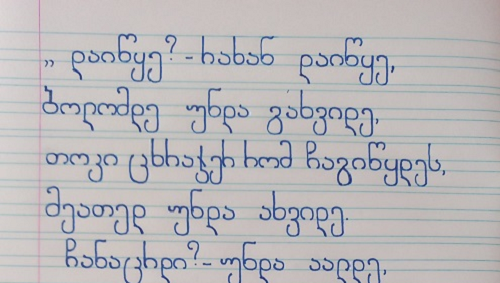 „ დაიწყე? - რახან დაიწყე,
ბოლომდე უნდა გახვიდე,
თოკი ცხრაჯერ რომ ჩაგიწყდეს,
მეათედ უნდა ახვიდე.
ჩანაცრდი? - უნდა აალდე,